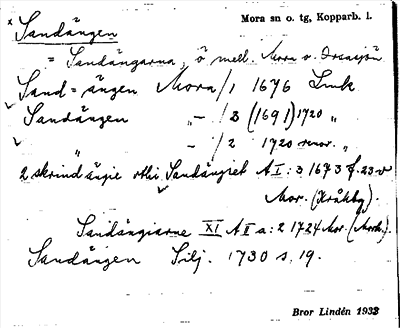 Mora sn o. tg, Kopparb. l.
x Sandängen
= Sandängarna, ö mell. Mora o. Orsasjön
Sand=ängen Mora/1 1676 Lmk
Sandängen „ – /3 (1691) 1720 „
„ – /2 1720 renov. „
2 skrindängie vthi Sandängiet A I : 3 1673 f. 23 v
Mor. (Kråkbg).
Sandängiarne XI A II a : 2 1724 Mor. (Mork.).
Sandängen Silj. 1730 s. 19.
Bror Lindén 1933